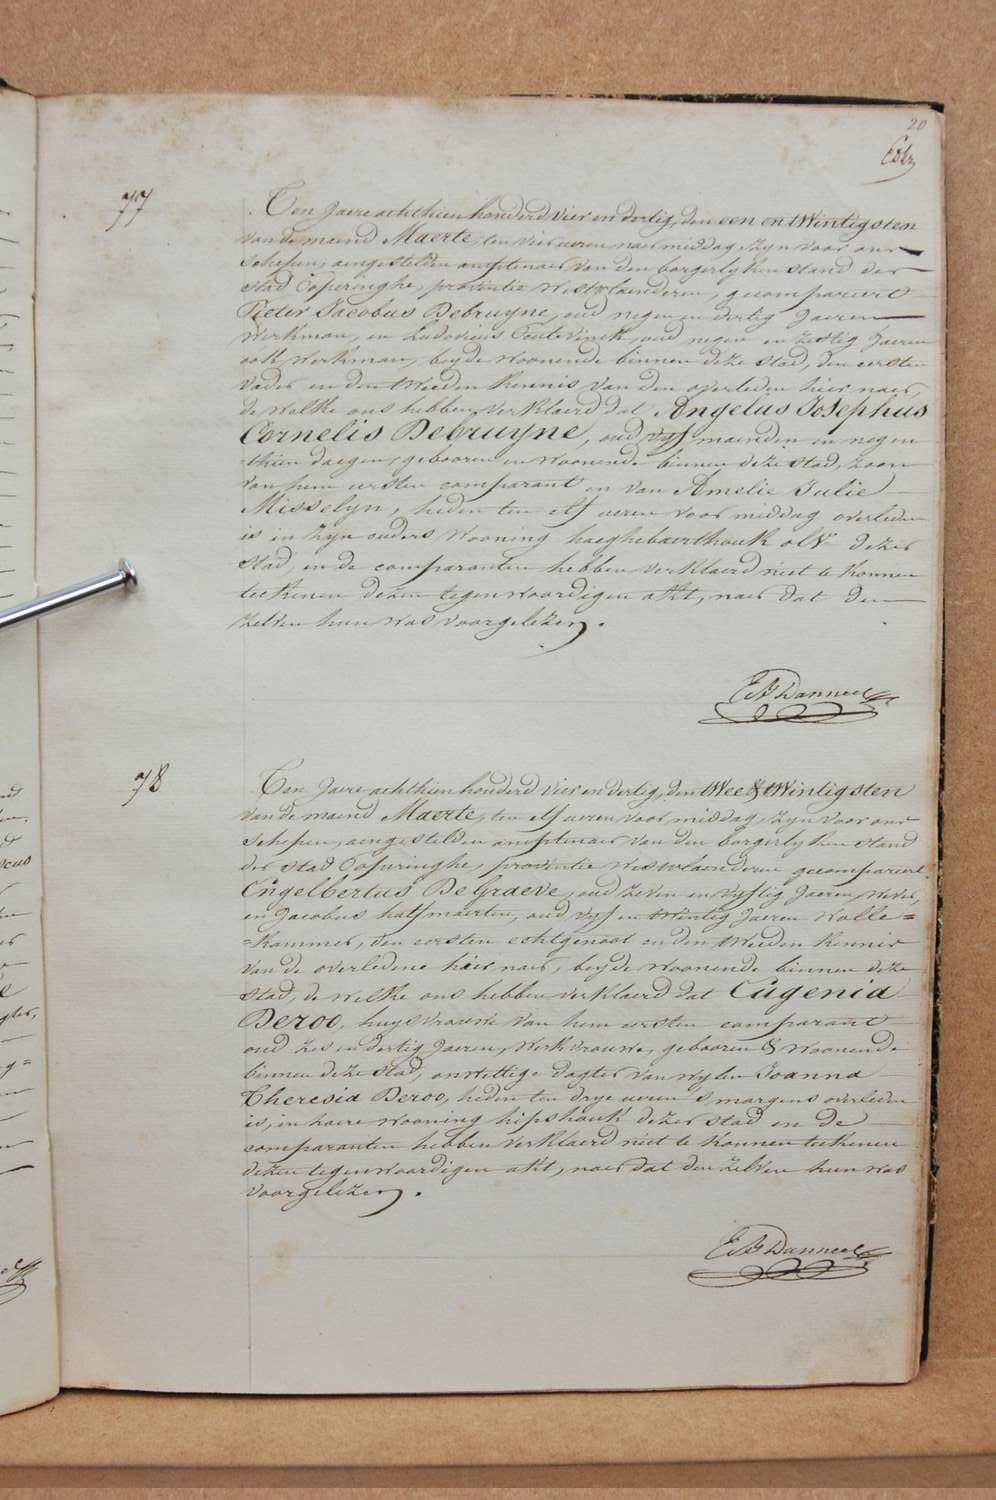 20
77
Ten Jaere achthien honderd vier en dertig, den een en twintigsten
van de maend Maerte, ten vier ueren naer middag, zyn voor ons
schepen, aengestelden amptenaer van den borgerlyken stand der
stad Poperinghe, provintie Westvlaenderen, gecompareert
Pieter Jacobus Debruyne, oud negen en dertig Jaeren
Werkman, en Ludovicus, oud negen en zestig Jaeren
ook werkman, beyde woonende binnen deze stad, den eersten
vader en den tweeden kennis van den overleden hier naer,
de welke ons hebben verklaerd dat Angelus Josephus
Cornelis Debruyne, oud vyf maenden en negen
thien daegen, gebooren en woonende binnen deze stad, zoon
van hem eersten comparant en van Amelie Julie
Misselyn, heden ten elf ueren voor middag overleden
is in zyn ouders wooning haeghebaerthouk dezer
stad, en de comparanten hebben verklaerd niet te konnen
teekenen dezen tegenwoordigen akt, naer dat den
zelven hun was voorgelezen.
Danneel
78
Ten Jaere achthien honderd vier en dertig, den twee & twintigsten
van de maend Maerte, ten elf ueren voor middag, zyn voor ons
schepen, aengestelden amptenaer van den borgerlyken stand
der stad Poperinghe, provintie Westvlaenderen gecompareert
Engelbertus De Graeve, oud zeven en vyftig Jaeren, wever,
en Jacobus halfmaerten, oud vyf en twintig Jaeren wolle=
=kammer, den eersten echtgenoot en den tweeden kennis
van de overledene hier naer, beyde woonende binnen deze
stad, de welke ons hebben verklaerd dat Eugenia
Deroo, huysvrouwe van hem eersten comparant
oud zes en dertig Jaeren, werkvrouwe, gebooren & woonende
binnen deze stad, onwettige dogter van wylen Joanna
Theresia Deroo, heden ten drye ueren s'morgens overleden
is, in haere wooning hipshouk dezer stad en de
comparanten hebben verklaerd niet te konnen teekenen
dezen tegenwoordigen akt, naer dat den zelven hun was
voorgelezen.
Danneel